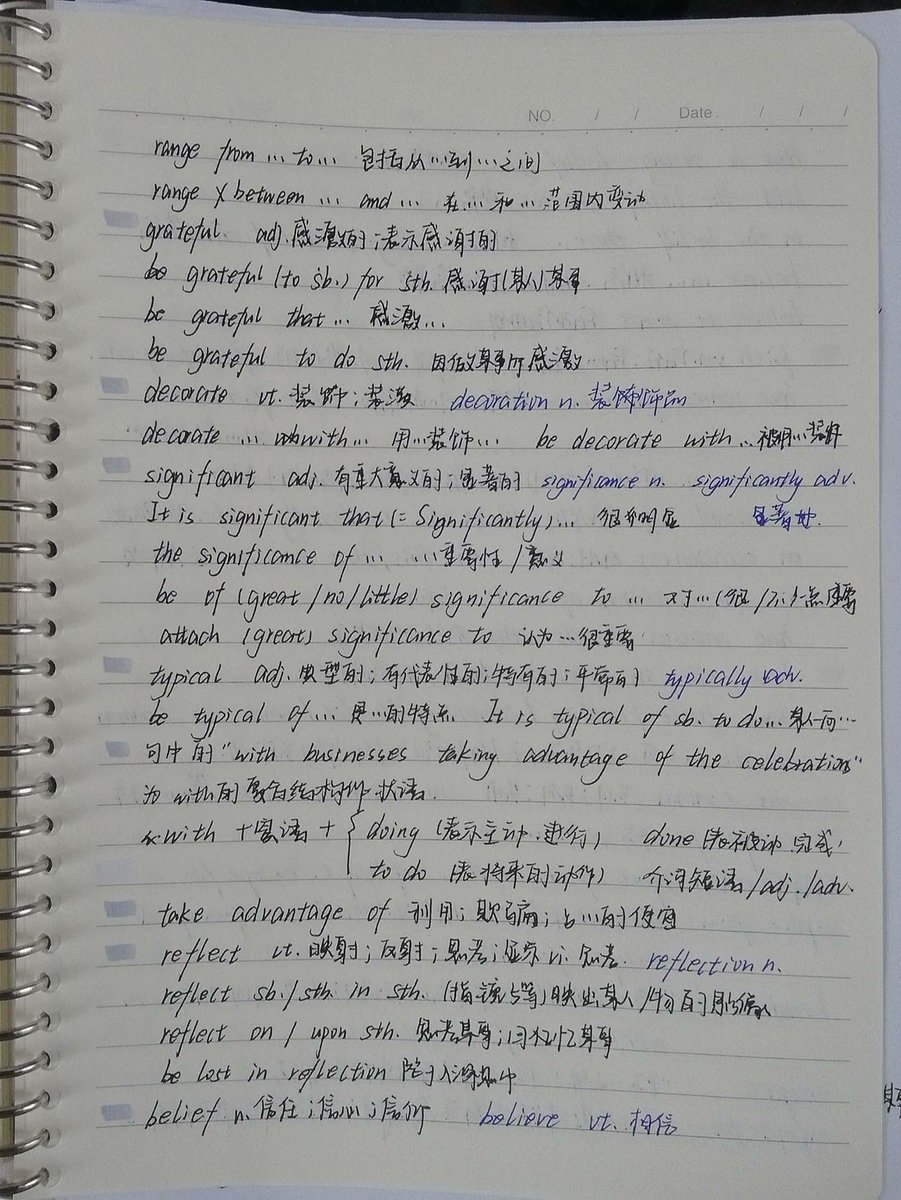 NO. / / Date. / / /
range from … to … 包括从…到…之间
range between … and … 在…和…范围内变动
grateful adj. 感激的；表示感谢的
be grateful (to sb.) for sth. 感谢(某人)某事
be grateful that … 感激…
be grateful to do sth. 因做某事而感激
decorate vt. 装饰；装潢 decoration n. 装饰饰品
decorate … with … 用…装饰… be decorate with … 被用…装饰
significant adj. 有重大意义的；显著的 significance n. significantly adv.
It is significant that (= Significantly) … 很明显 显著地.
the significance of … …重要性/意义
be of (great/no/little) significance to … 对…(很/不/)一点重要
attach (great) significance to 认为…很重要
typical adj. 典型的；有代表性的；特有的；平常的 typically adv.
be typical of … 是…的特点 It is typical of sb. to do … 某人一向…
句中的"with businesses taking advantage of the celebrations"
为with的复合结构作状语.
with + 宾语 + { doing (表示主动.进行) done (表被动 完成)
to do (表将来的动作) 介词短语/adj./adv.
take advantage of 利用；欺骗；占…的便宜
reflect vt. 映射；反射；思考；显示 vi. 思考. reflection n.
reflect sb./sth. in sth. (指镜子等)映出某人/物的影像
reflect on / upon sth. 思考某事；回忆某事
be lost in reflection 陷于沉思中
belief n. 信任；信心；信仰 believe vt. 相信